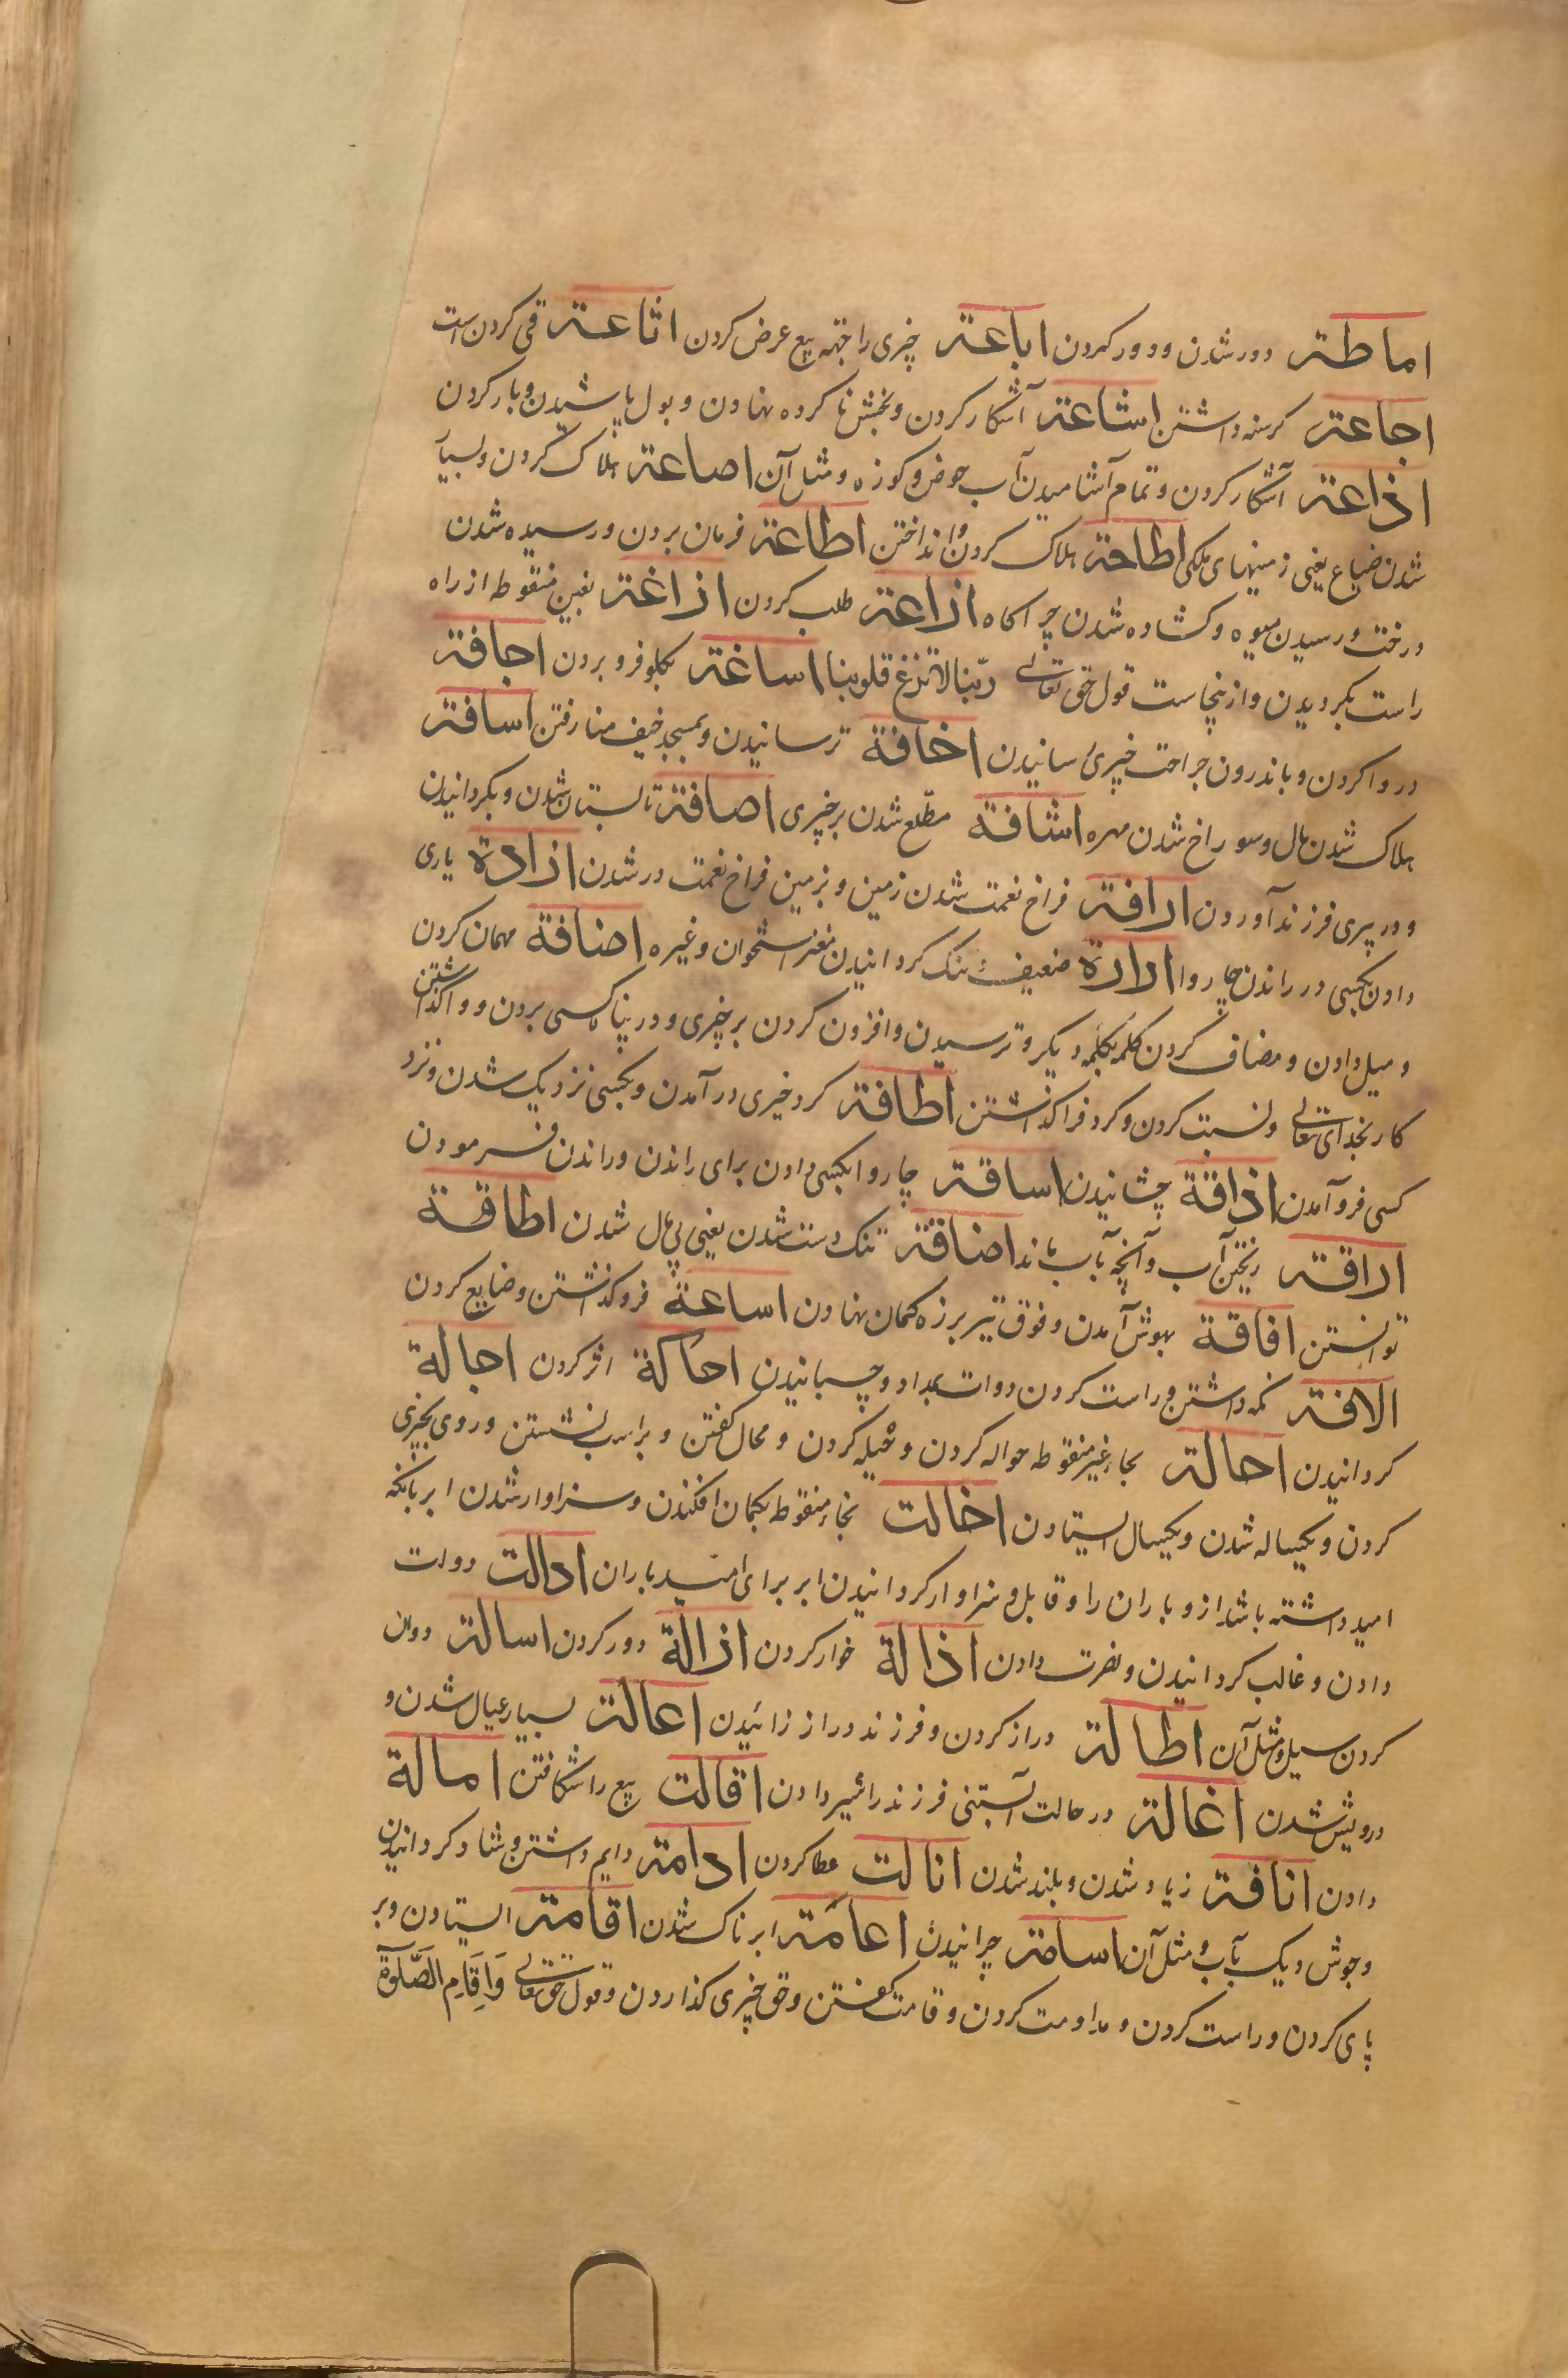 اماطة دور شدن و دور کردن اباعة چیزی را جهة بیع عرض کردن اثاعة قی کردن است
اجاعة کرسنه داشتن اشاعة آشکار کردن و بخش نا کرده نهادن و بول پاشیدن و بار کردن
اذاعة آشکار کردن و تمام آشامیدن آب حوض و کوزه و مثل آن اضاعة هلاک کردن و بسیار
شدن ضیاع یعنی زمینهای ملکی اطاحة هلاک کردن و انداختن اطاعة فرمان بردن و رسیده شدن
درخت و رسیدن میوه و کشاده شدن چراکاه ازاعة طلب کردن ازاغة بغین منقوطه از راه
راست بکردیدن و از ینجاست قول حق تعالی ربّنا لا تزغ قلوبنا اساغة بکلو فرو بردن اجافة
در وا کردن و باندرون جراحت چیزی رسانیدن اخافة ترسانیدن و بمسجد خیف منا رفتن اسافة
هلاک شدن مال و سوراخ شدن مهره اشافة مطّلع شدن بر چیزی اصافة تابستان شدن و بکردانیدن
و در پیری فرزند آوردن ارافة فراخ نعمت شدن زمین و بزمین فراخ نعمت در شدن ازادة یاری
دادن بکسی در راندن چاروا ارارة ضعیف و تنک کردانیدن مغز استخوان و غیره اضافة مهمان کردن
و میل دادن و مضاف کردن کلمه بکلمه دیکر و ترسیدن و افزون کردن بر چیزی و در پناه کسی بردن و واکذاشتن
کار بخدای تعالی و نسبت کردن و کرد فرا کذاشتن اطافة کرد چیزی در آمدن و بکسی نزدیک شدن و نزد
کسی فرو آمدن اذاقة چشانیدن اساقة چاروا بکسی دادن برای راندن و راندن فرمودن
اراقة ریختن آب و آنچه بآب ماند اضاقة تنک دست شدن یعنی بی مال شدن اطاقة
توانستن افاقة بهوش آمدن و فوق تیر بر زه کمان نهادن اساعة فرو کذاشتن و ضایع کردن
الاقة نکه داشتن و راست کردن دوات بمداد و چسبانیدن احاکة اثر کردن اجالة
کردانیدن احالة بحاء غیر منقوطه حواله کردن و حیله کردن و محال کفتن و بر اسب نشستن و روی بچیزی
کردن و یکساله شدن و یکسال ایستادن اخالت بخاء منقوطه بکمان افکندن و سزاوار شدن ابر بانکه
امید داشته باشد از و باران را و قابل و سزاوار کردانیدن ابر برای امید باران ادالت دولت
دادن و غالب کردانیدن و نصرت دادن اذالة خوار کردن ازالة دور کردن اسالة روان
کردن سیل و مثل آن اطالة دراز کردن و فرزند دراز زائیدن اعالة بسیار عیال شدن و
درویش شدن اغالة در حالت آبستنی فرزند را شیر دادن اقالت بیع را شکافتن امالة
دادن انافة زیاد شدن و بلند شدن انالت عطا کردن ادامة دایم داشتن و شاد کردانیدن
و جوش دیک بآب و مثل آن اسامة چرانیدن اعامة ابرناک شدن اقامة ایستادن و بر
پای کردن و راست کردن و مداومت کردن و قامت کفتن و حق چیزی کذاردن و قول حق تعالی وَاِقَامِ الصَّلٰوةِ